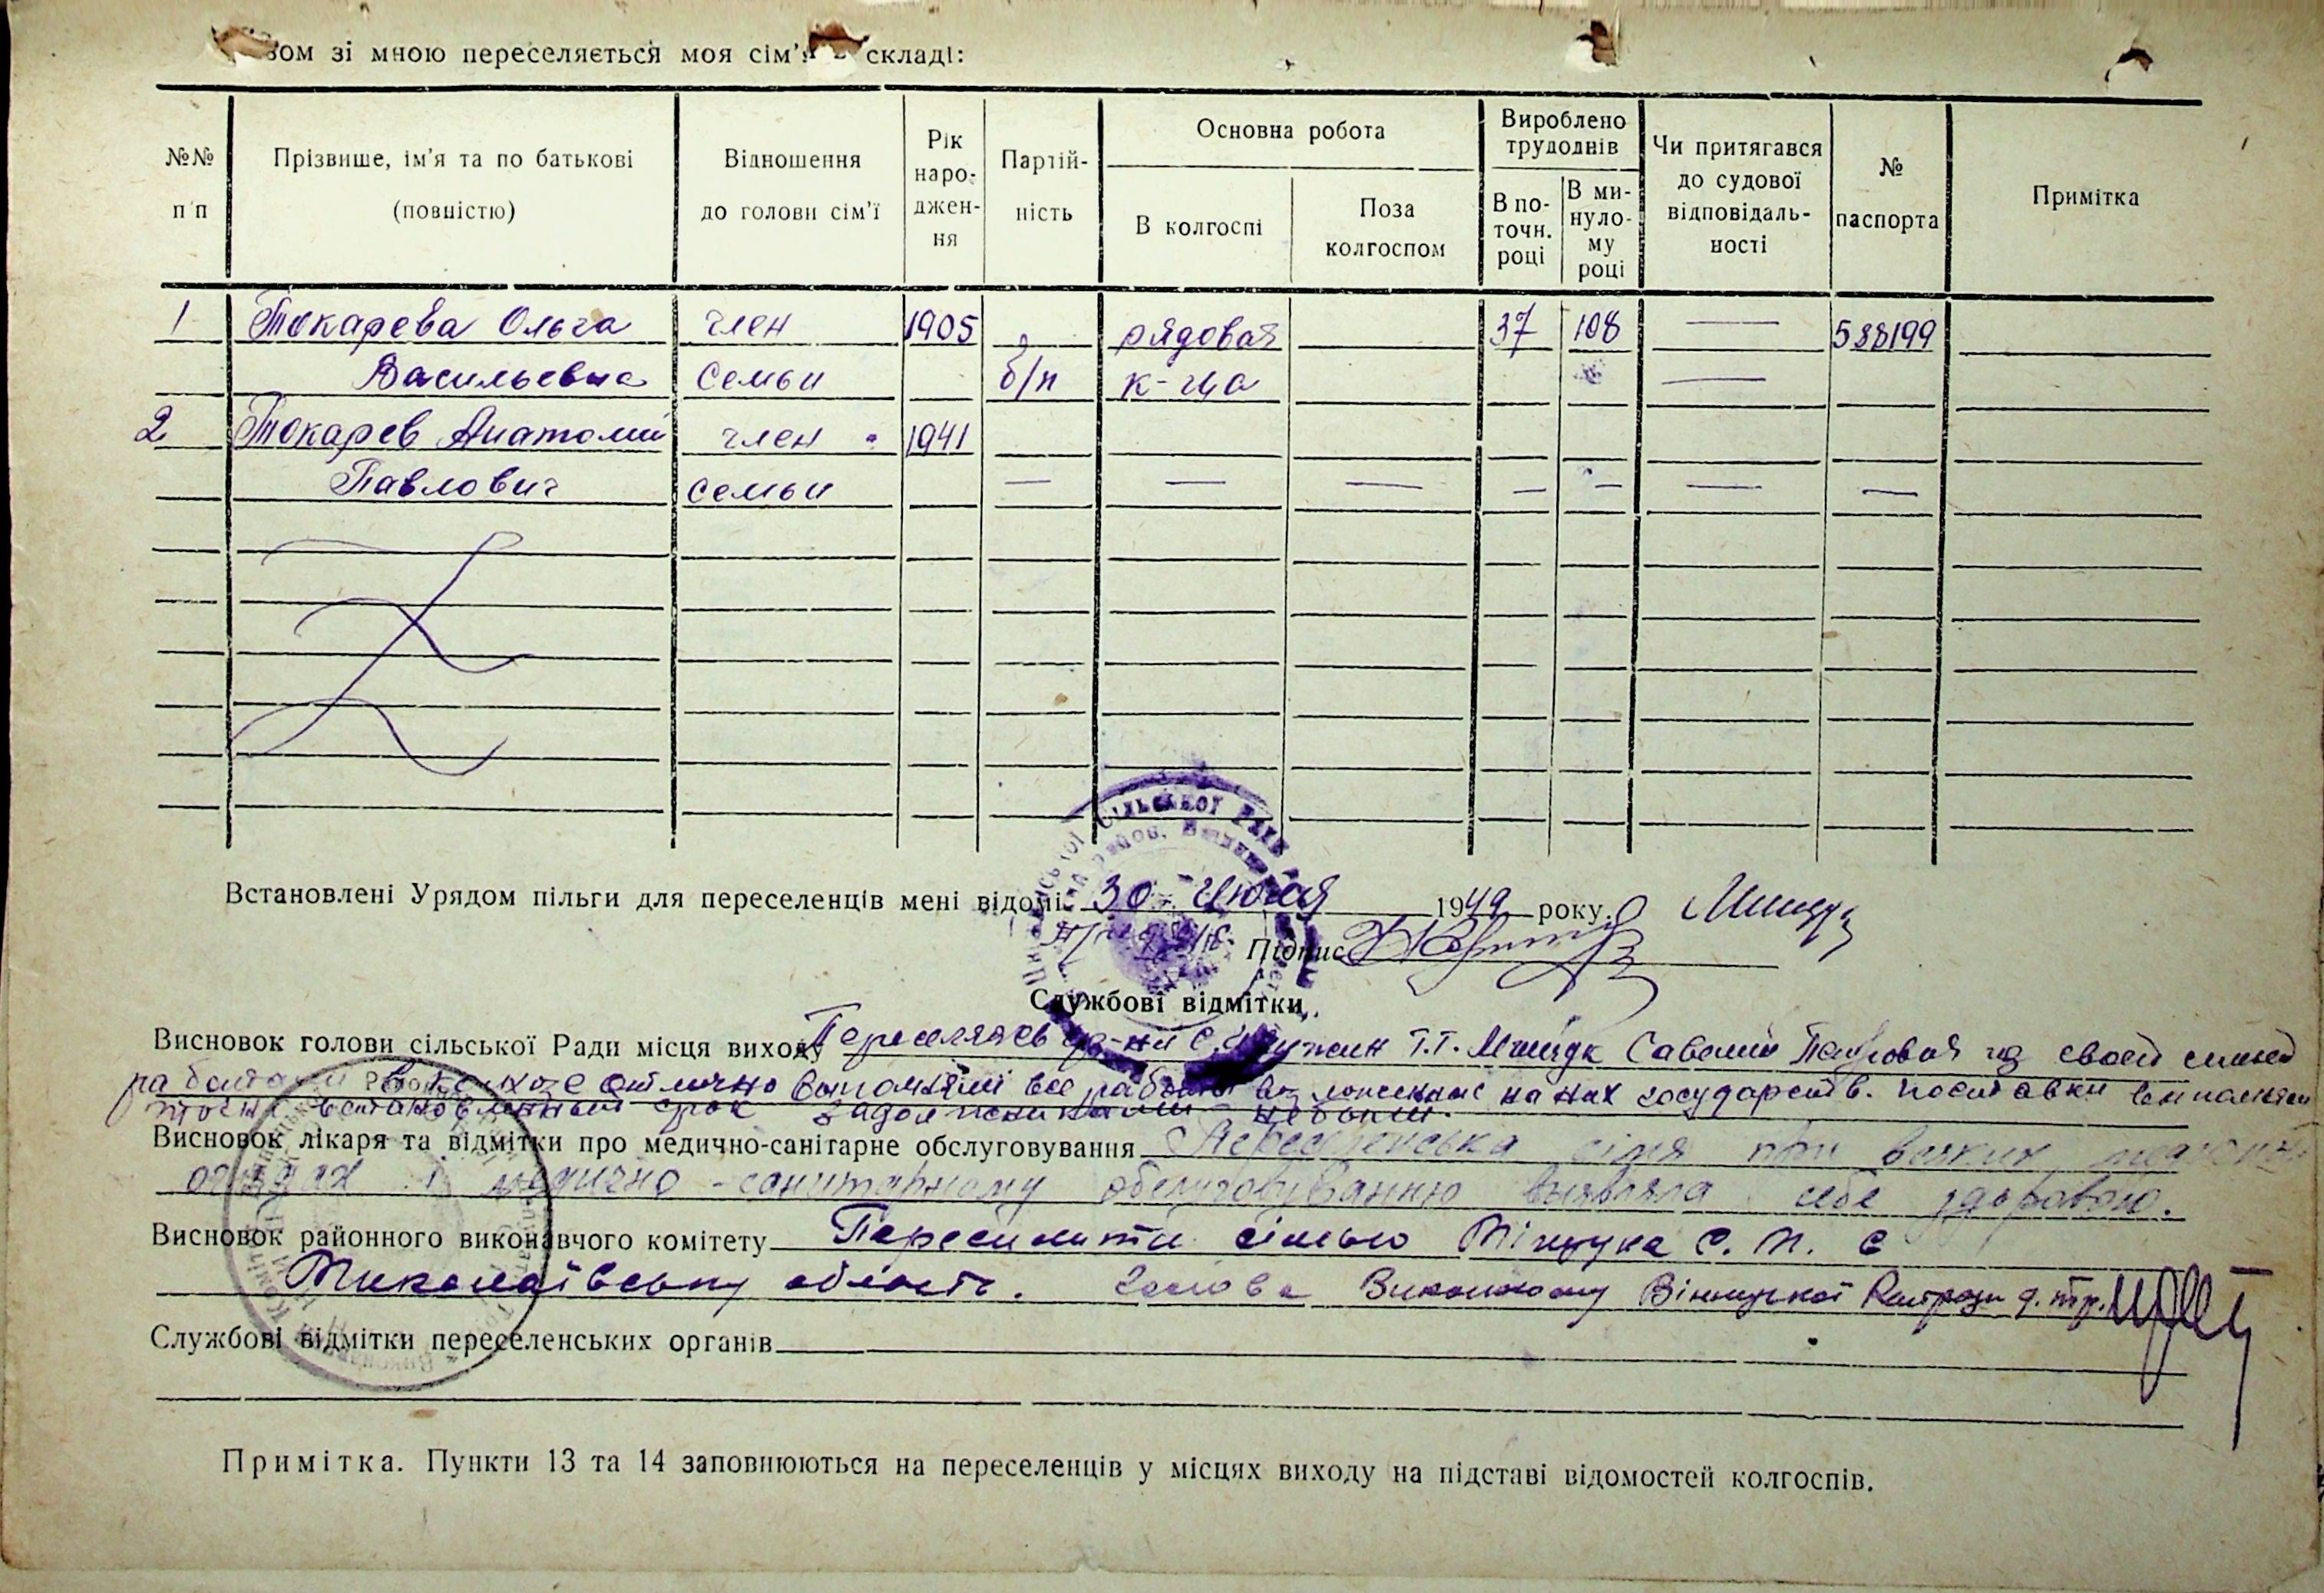 зом зі мною переселяється моя сім'я в складі:
№№ п п Прізвище, ім'я та по батькові (повністю) Відношення до голови сім'ї Рік народження Партійність Основна робота В колгоспі Поза колгоспом Вироблено трудоднів В поточн. році В минулому році Чи притягався до судової відповідальності № паспорта Примітка
1 Токарева Ольга член 1905 рядовая 37 108 — 588199
Васильевна семьи б/п к-ца —
2 Токарев Анатолий член 1941
Павлович семьи — — — — — — —
Встановлені Урядом пільги для переселенців мені відомі 30 - Июня 1949 року.
Підпис
Службові відмітки
Висновок голови сільської Ради місця виходу С. Т.Т. Савелий из своей семьей
работали в колхозе отлично выполняли все работы на них государств. поставки
точно в установленный срок
Висновок лікаря та відмітки про медично-санітарне обслуговування Переселенська сімя при всяких
оглядах і медично-санитарному обслуговуванню виявляла себе здоровою.
Висновок районного виконавчого комітету Переселити сімью Міщука С. П. в
Миколаївську область. Голова Виконкому Вінницької Райради д. тр.
Службові відмітки переселенських органів
Примітка. Пункти 13 та 14 заповнюються на переселенців у місцях виходу на підставі відомостей колгоспів.